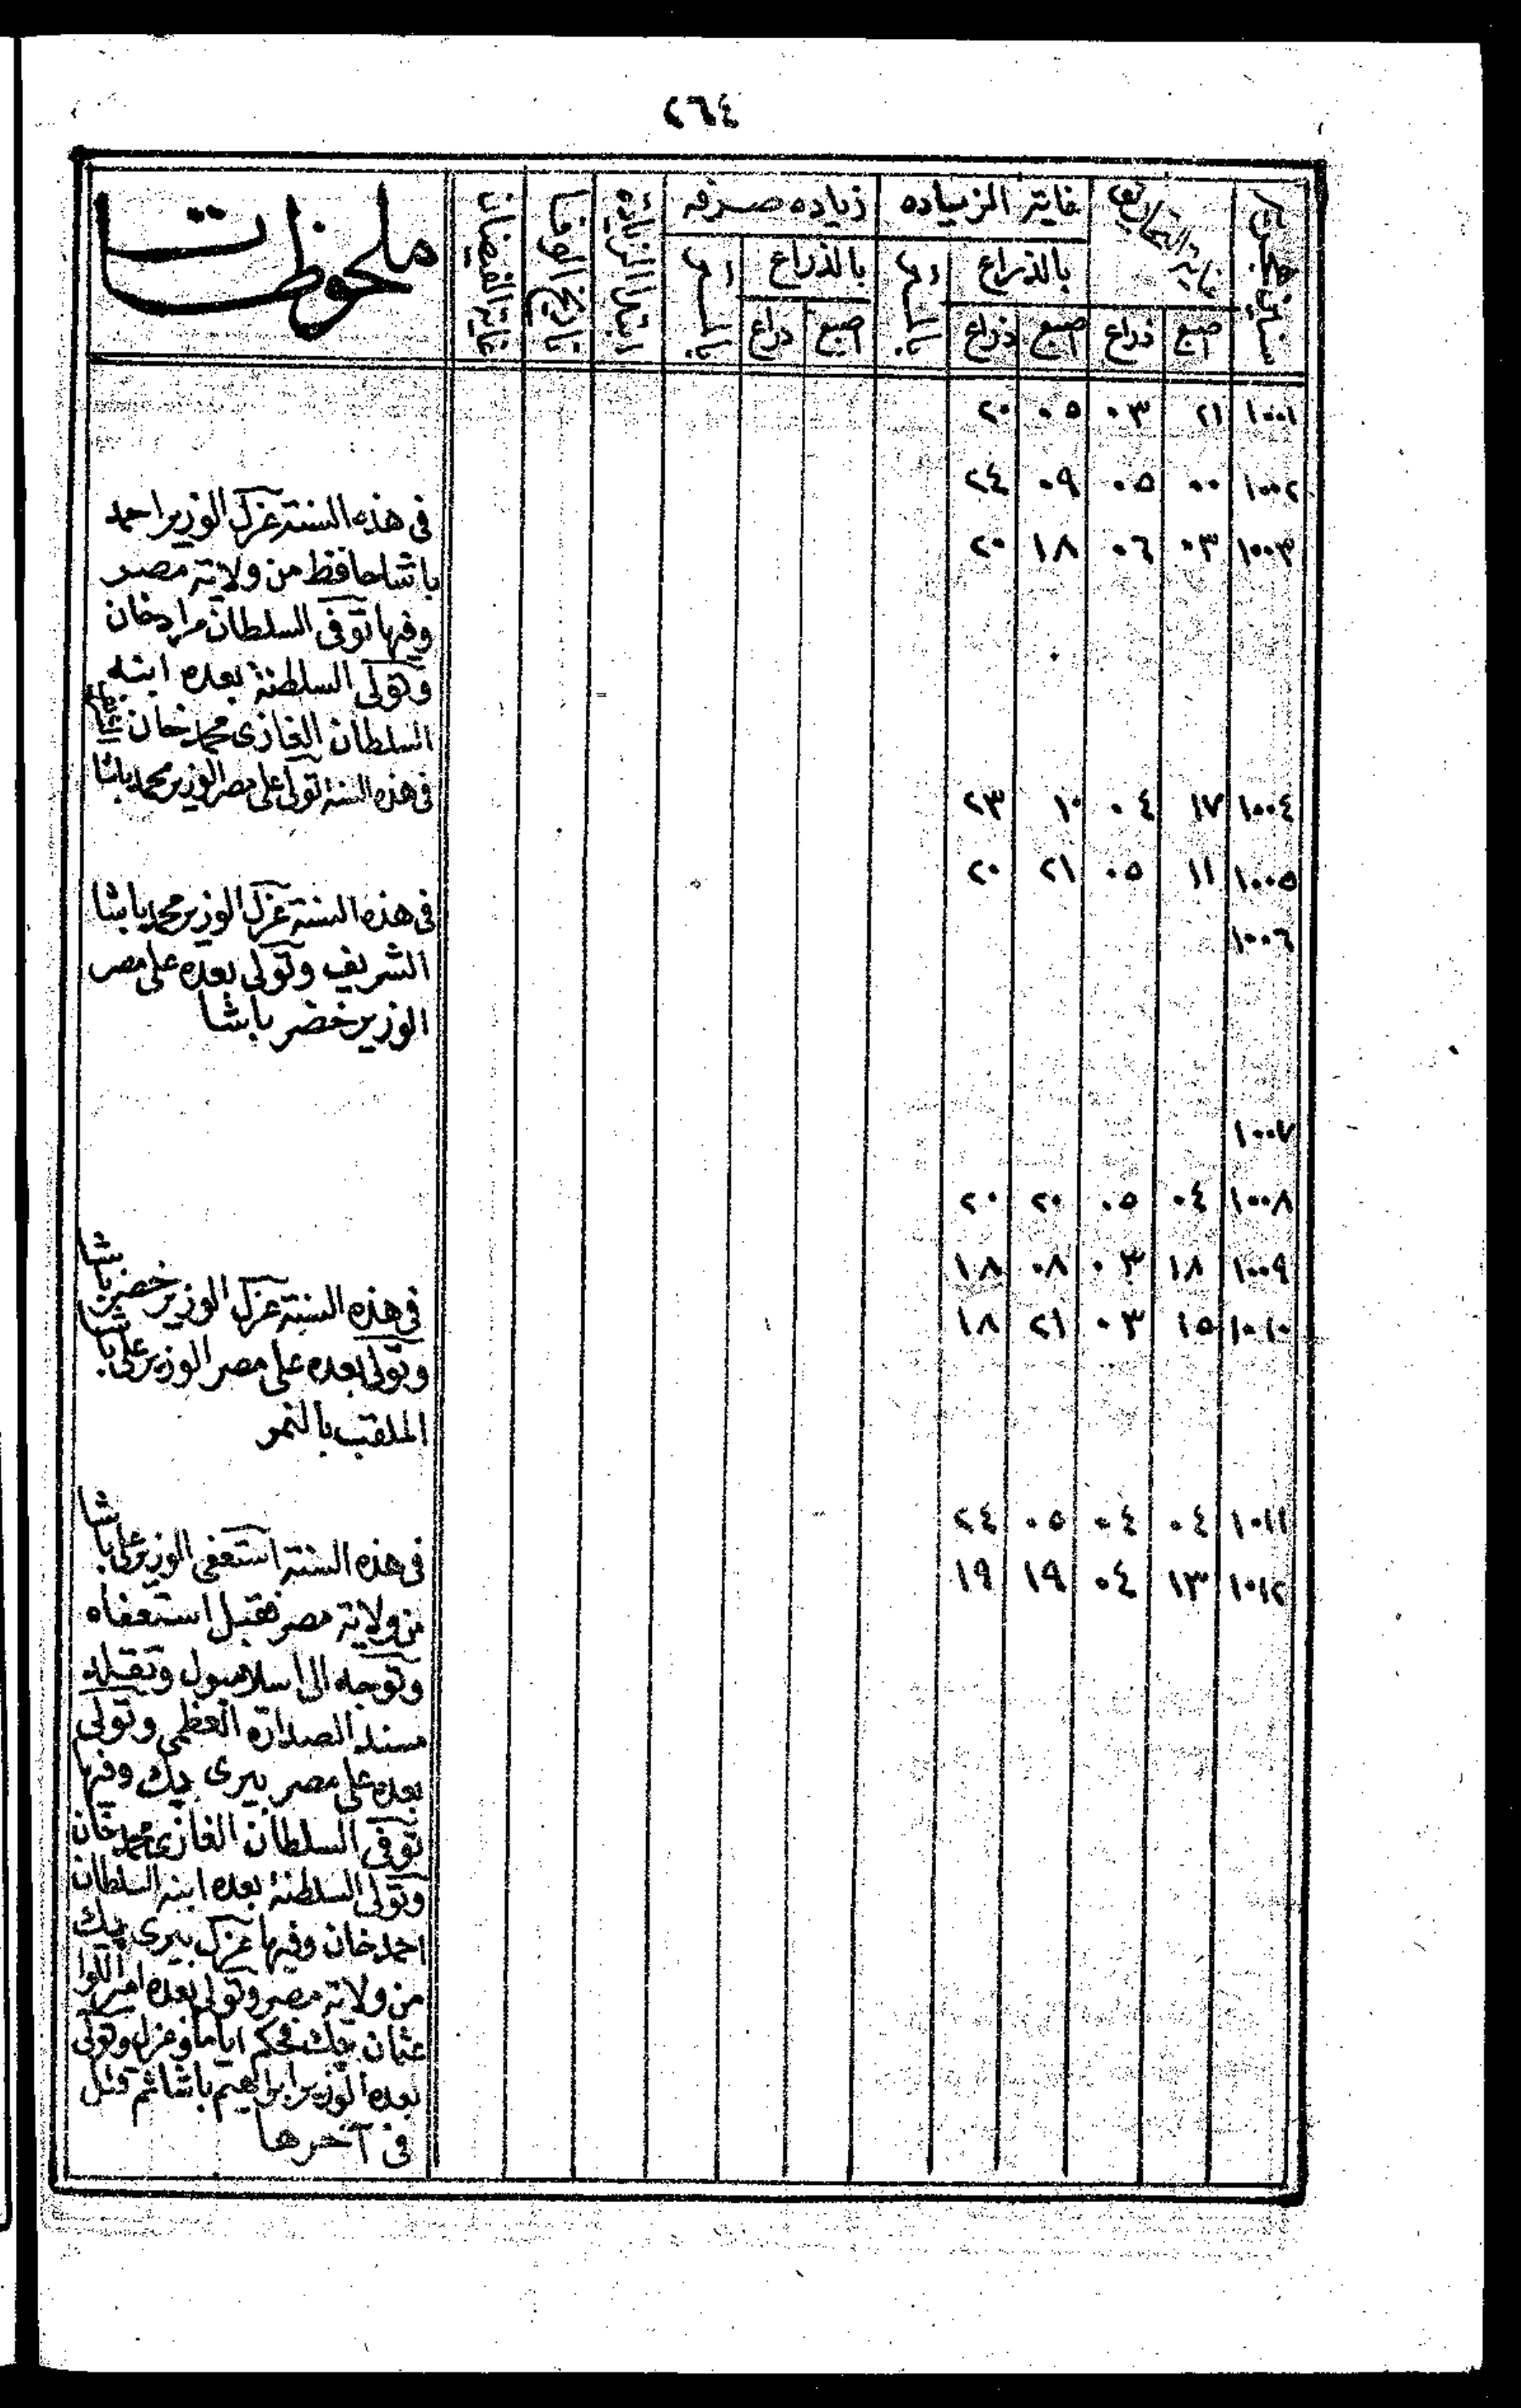 ٢٦٤
سنين هجرية
غاية التحاريق
غاية الزياده
زياده صرفه
ابتدا الزيادة
تاريخ الوفا
غاية الفيضان
ملحوظات
بالذراع
بالمتر
بالذراع
بالمتر
اصبع ذراع اصبع ذراع اصبع ذراع
١٠٠١ ٢١ ٠٣ ٠٥ ٢٠
١٠٠٢ ٠٠ ٠٥ ٠٩ ٢٤
١٠٠٣ ٠٣ ٠٦ ١٨ ٢٠
في هذه السنة عزل الوزير احمد
باشا حافظ من ولاية مصر
وفيها توفى السلطان مراد خان
وتولى السلطنة بعده ابنه
السلطان الغازى محمد خان الثالث
١٠٠٤ ١٧ ٠٤ ١٠ ٢٣
في هذه السنة تولى على مصر الوزير محمد باشا
١٠٠٥ ١١ ٠٥ ٢١ ٢٠
١٠٠٦
في هذه السنة عزل الوزير محمد باشا
الشريف وتولى بعده على مصر
الوزير خضر باشا
١٠٠٧
١٠٠٨ ٠٤ ٠٥ ٢٠ ٢٠
١٠٠٩ ١٨ ٠٣ ٠٨ ١٨
١٠١٠ ١٥ ٠٣ ٢١ ١٨
في هذه السنة عزل الوزير خضر باشا
وتولى بعده على مصر الوزير على باشا
الملقب بالنمر
١٠١١ ٠٤ ٠٤ ٠٥ ٢٤
١٠١٢ ١٣ ٠٤ ١٩ ١٩
في هذه السنة استعفى الوزير على باشا
من ولاية مصر فقبل استعفاه
وتوجه الى اسلامبول وتقلد
مسند الصدارة العظمى وتولى
بعده على مصر بيرى بيك وفيها
توفى السلطان الغازى محمد خان
وتولى السلطنة بعده ابنه السلطان
احمد خان وفيها عزل بيرى بيك
من ولاية مصر وتولى بعده امير اللوا
عثمان بيك فحكم اياما وعزل وتولى
بعده الوزير ابراهيم باشا ثم قتل
في آخرها